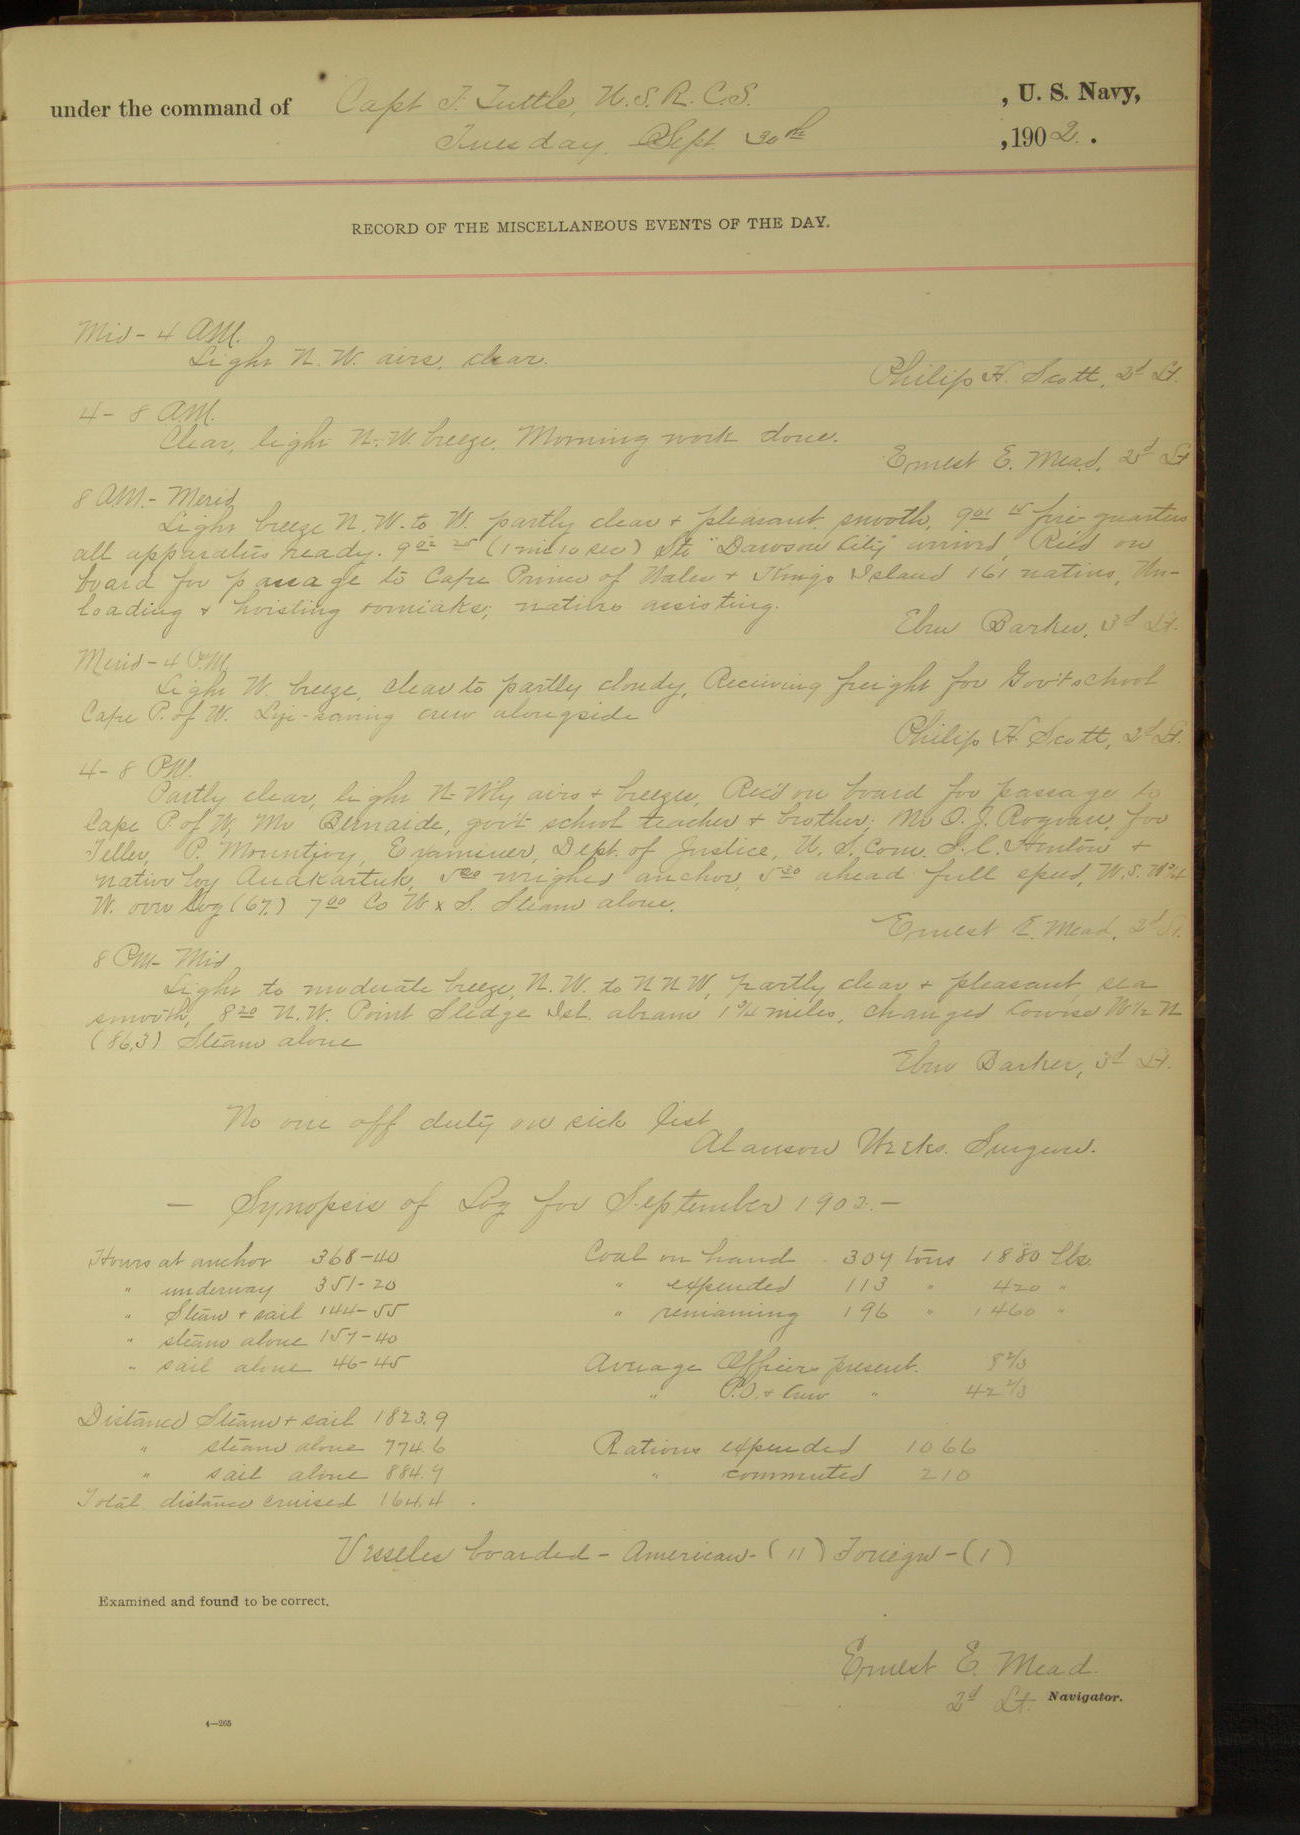 under the command of Capt F. Tuttle, U.S.R.C.S. , U. S. Navy,
Tuesday, Sept 30th , 1902.
RECORD OF THE MISCELLANEOUS EVENTS OF THE DAY.
Mid - 4 AM.
Light N. W. airs, clear.
Philip H. Scott, 2d Lt.
4 - 8 AM.
Clear, light N.-W. breeze. Morning work done.
Ernest E. Mead, 2d Lt
8 AM. - Merid
Light breeze N. W. to W. partly clear + pleasant, smooth. 9 01 15 fire quarters
all apparatus ready. 9 02 25 (1 min 10 sec) Str "Dawson City" arrived, Rec'd on
board for passage to Cape Prince of Wales + Kings Island 161 natives, Un-
loading + hoisting oomiaks; natives assisting.
Eben Barker, 3d Lt.
Merid - 4 P.M.
Light W. breeze, clear to partly cloudy, Receiving freight for Gov't school
Cape P. of W. Life-saving crew alongside
Philip H. Scott, 2d Lt.
4 - 8 PM.
Partly clear, light N-W'ly airs + breeze, Rec'd on board for passage to
Cape P. of W, Mr Bernaide, gov't school teacher + brother; Mr O. J. Rognon, for
Teller, P. Mountjoy, Examiner, Dept. of Justice, U. S. Com. S. C. Henton +
native boy Audkartuk, 5 20 weighed anchor, 5 30 ahead full speed, W.S.W 3/4
W. over Log (67.) 7 00 Co W x S. Steam alone.
Ernest E. Mead, 2d Lt.
8 PM - Mid
Light to moderate breeze, N. W. to N N W, partly clear + pleasant, sea
smooth, 8 20 N. W. Point Sledge Isl. abeam 1 3/4 miles, changed course W 1/2 N
(86.3) Steam alone
Eben Barker, 3d Lt.
No one off duty on sick list
Alanson Weeks. Surgeon.
— Synopsis of Log for September 1902. —
Hours at anchor 368-40 Coal on hand 309 tons 1880 lbs.
" underway 351-20 " expended 113 " 420 "
" Steam + sail 144-55 " remaining 196 " 1460 "
" steam alone 157-40
" sail alone 46-45 Average Officers present. 8 2/3
" P.O. + Crew " 42 2/3
Distance Steam + sail 1823.9
" steam alone 774.6 Rations expended 1066
" sail alone 884.9 " commuted 210
Total distance cruised 164.4.
Vessels boarded - American - (11) Foreign - (1)
Examined and found to be correct.
Ernest E. Mead.
2d Lt. Navigator.
4—265